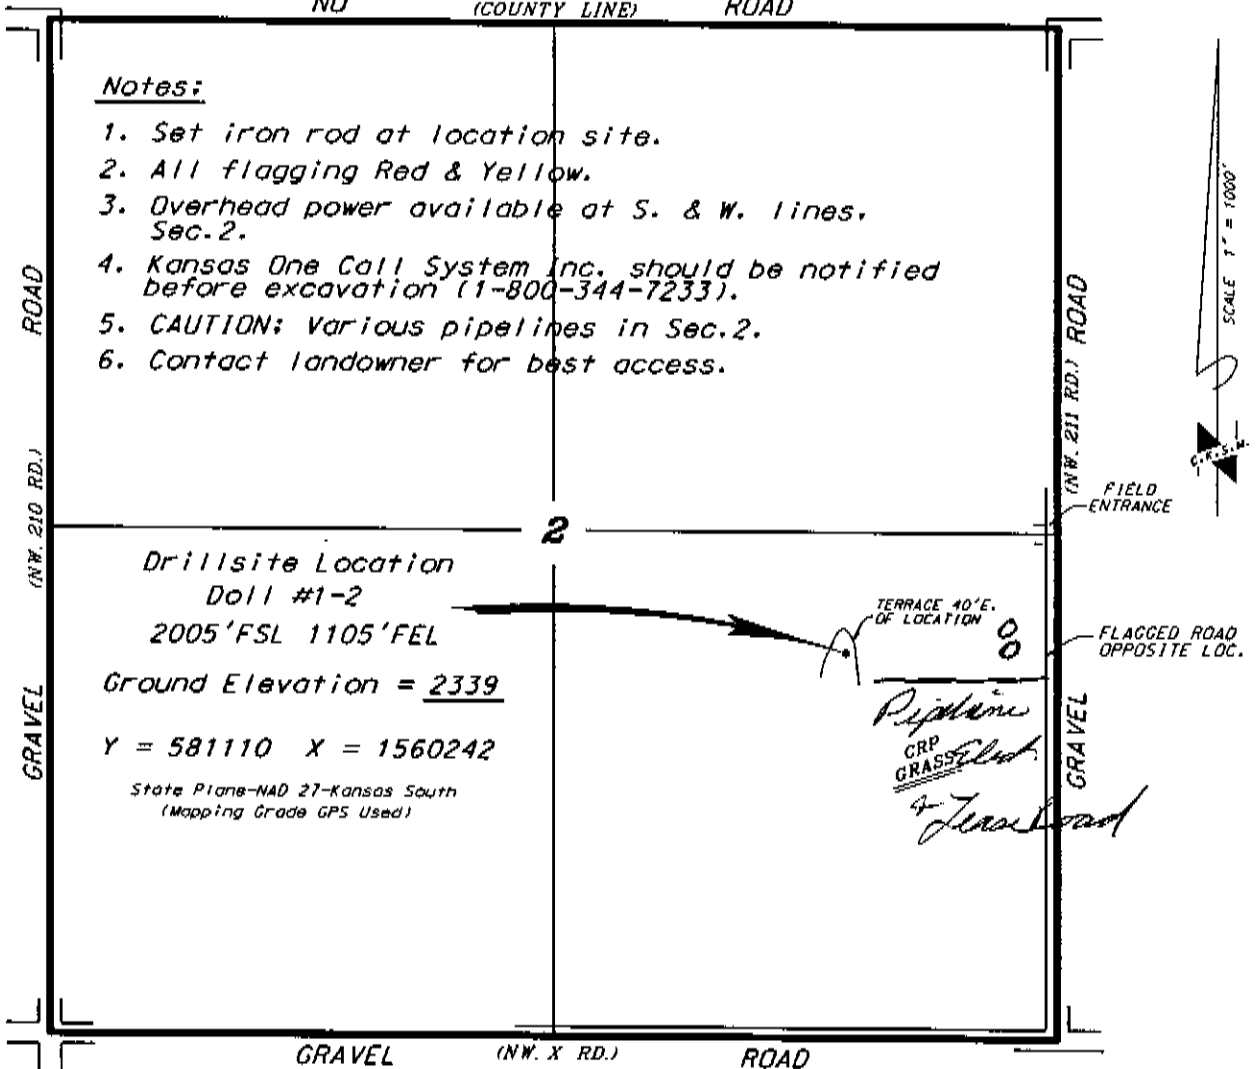 NO (COUNTY LINE) ROAD
Notes:
1. Set iron rod at location site.
2. All flagging Red & Yellow.
3. Overhead power available at S. & W. lines,
Sec.2.
4. Kansas One Call System Inc. should be notified
before excavation (1-800-344-7233).
5. CAUTION: Various pipelines in Sec.2.
6. Contact landowner for best access.
SCALE 1" = 1000'
C.K.S.M.
GRAVEL (NW. 210 RD.) ROAD
GRAVEL (NW. 211 RD.) ROAD
FIELD
ENTRANCE
2
Drillsite Location
Doll #1-2
2005'FSL 1105'FEL
Ground Elevation = 2339
Y = 581110 X = 1560242
State Plane-NAD 27-Kansas South
(Mapping Grade GPS Used)
TERRACE 40'E.
OF LOCATION
O
O
FLAGGED ROAD
OPPOSITE LOC.
Pipeline
Elect.
CRP
GRASS
& Lease Road
GRAVEL (NW. X RD.) ROAD